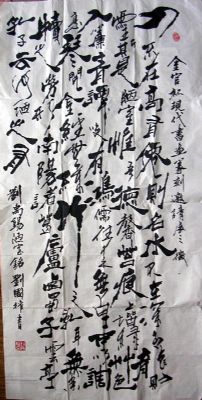 山不在高有仙則名水不在深有龍則
靈斯是陋室惟吾德馨苔痕上階綠草色
入簾青談笑有鴻儒往來無白丁可以調
素琴閱金經無絲竹之亂耳無案
牘之勞形南陽諸葛廬西蜀子雲亭
孔子云何陋之有
劉禹錫陋室銘 劉國 書
現代書畫篆刻邀請